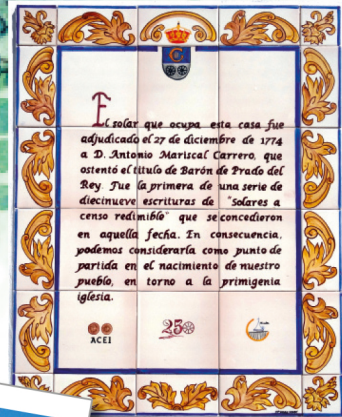 El solar que ocupa esta casa fue
adjudicado el 27 de diciembre de 1774
a D. Antonio Mariscal Carrero, que
ostentó el título de Barón de Prado del
Rey. Fue la primera de una serie de
diecinueve escrituras de "Solares a
censo redimible" que se concedieron
en aquella fecha. En consecuencia,
podemos considerarla como punto de
partida en el nacimiento de nuestro
pueblo, en torno a la primigenia
iglesia.
ACEI
250